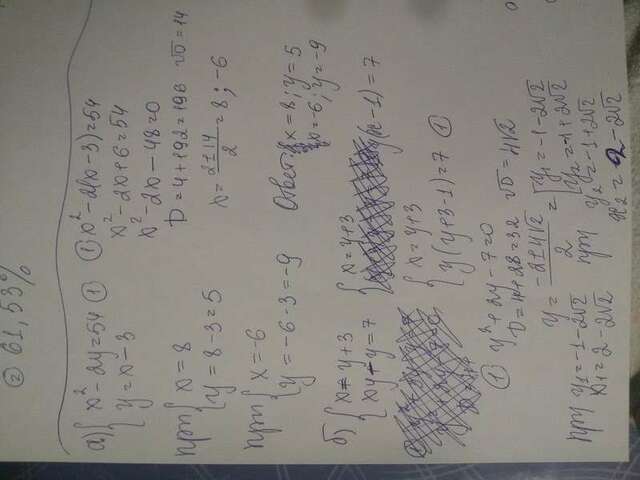 ② 61,53%
а) { x² - 2y = 54 ①
{ y = x - 3
① x² - 2(x - 3) = 54
x² - 2x + 6 = 54
x² - 2x - 48 = 0
D = 4 + 192 = 196 √D = 14
x = (2 ± 14)/2 = 8 ; -6
при { x = 8
{ y = 8 - 3 = 5
при { x = -6
{ y = -6 - 3 = -9
Ответ: x = 8; y = 5
x = -6; y = -9
б) { x = y + 3
{ xy - y = 7
{ x = y + 3
y(x - 1) = 7
{ x = y + 3
{ y(y + 3 - 1) = 7 ①
① y² + 2y - 7 = 0
D = 4 + 28 = 32 √D = 4√2
y = (-2 ± 4√2)/2 = [ y₁ = -1 - 2√2
[ y₂ = -1 + 2√2
при y₁ = -1 - 2√2
x₁ = 2 - 2√2
при y₂ = -1 + 2√2
x₂ = 2 - 2√2